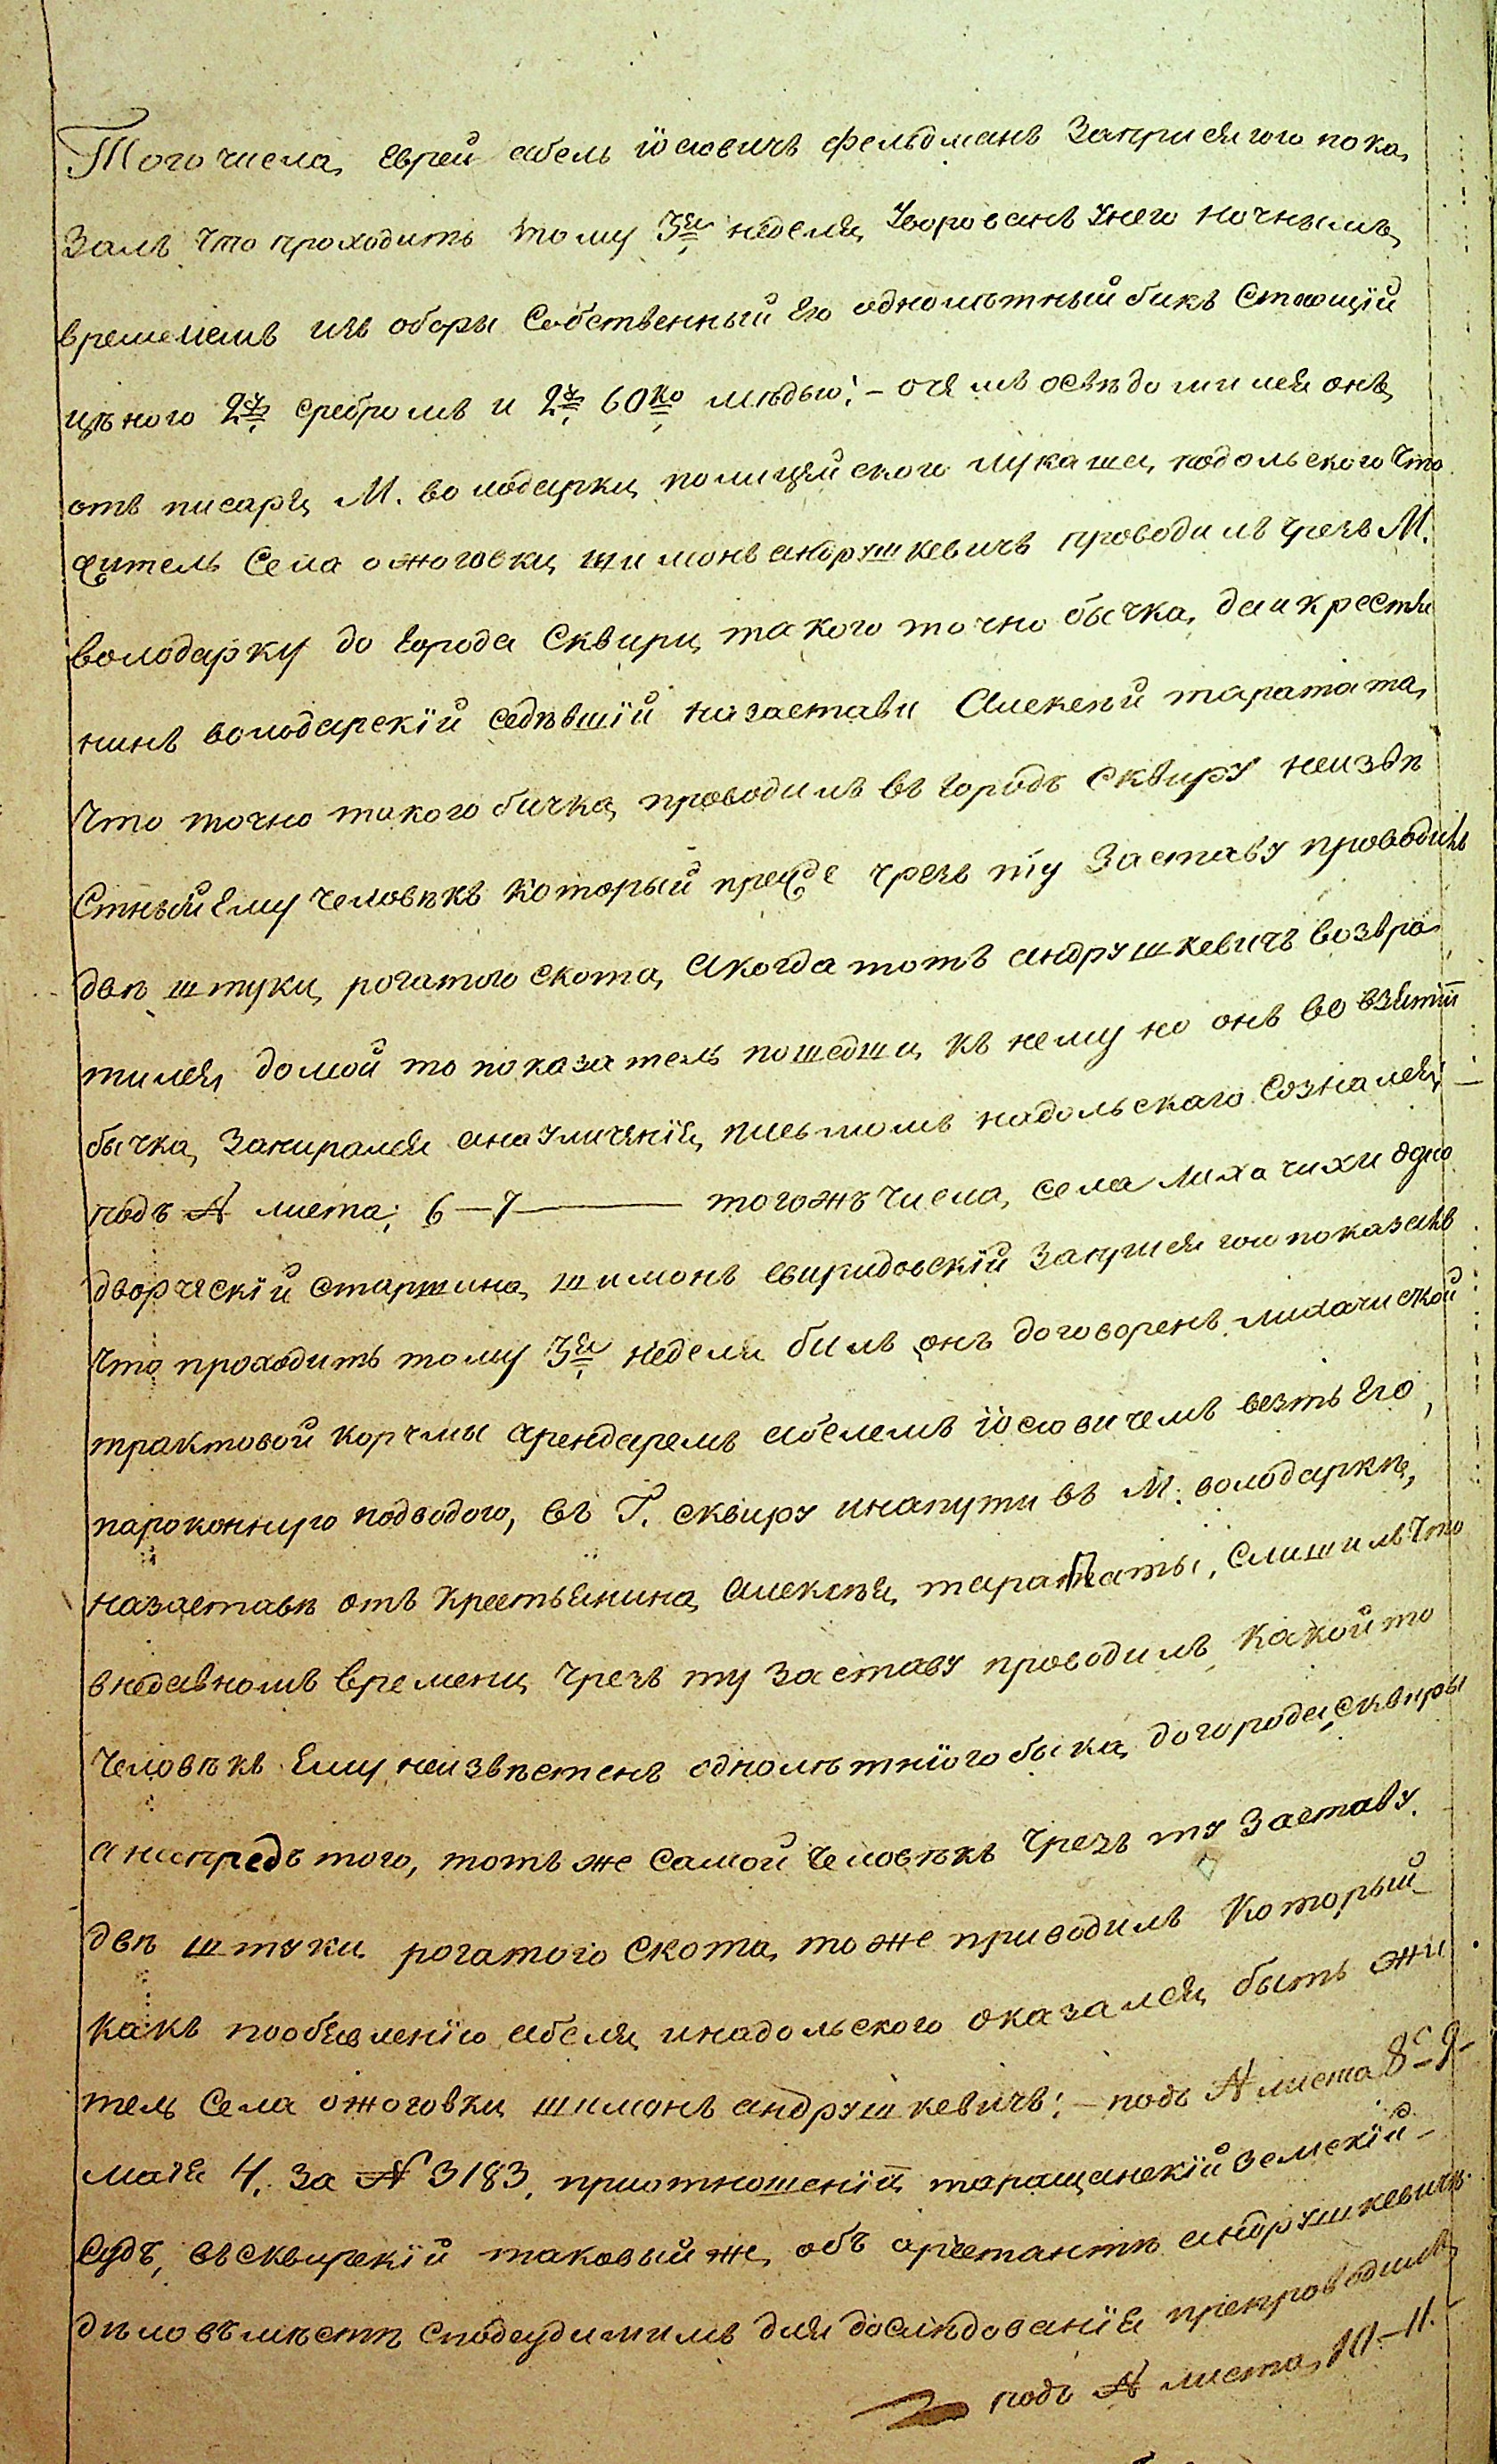 Того числа, Еврей абель іосіовичъ фельдманъ Заприсягою пока,
залъ что проходитъ тому 3я неделя, Уворованъ Унего ночнымъ,
временемъ изъ оборы Собственный Его однолѣтный бикъ Стоющій
цѣного 2р сребромъ и 2р 60ко мѣдью; – очемъ освѣдомился онъ,
отъ писаря, М. володарки, полицейского лукаша, надольского что
житель Села ожоговки, шимонъ андрушкевичъ проводилъ чрезъ М.
володарку до Города Сквири, такого точно бычка, даи крестя
нинъ володарскій седѣвшій назаставѣ Алексѣй таратата,
что точно такого бичка, проводилъ въ Городъ Сквиру неизвѣ
стный Ему человѣкъ который прежде чрезъ ту Заставу проводилъ
двѣ штуки, рогатого скота, Акогда тотъ андрушкевичъ возвра,
тился, домой то показатель пошедши, къ нему но онъ во взятіи
бычка, Запирался анауличенія, писмомъ надольскаго Сознался; –
подъ № листа; 6–7 — тогожъ числа, села лихачихи одно
дворческій старшина, шимонъ свиридовскій Заприсягою показалъ
что проходитъ тому 3я недели билъ онъ договоренъ лихачиской
трактовой корчмы арендаремъ абелемъ іосіовичемъ везть Его,
пароконную подводою, въ Г. сквиру инапути въ М. володаркѣ,
назаставѣ отъ крестьянина, алексѣя, тарататы, Слишилъ что
внедавномъ времени, чрезъ ту заставу проводилъ, какойто
человѣкъ Ему неизвѣстенъ однолѣтнюго быка, догорода, сквиры
анапредъ того, тотъ же самой человѣкъ чрезъ ту Заставу
двѣ штуки рогатого скота, тоже приводилъ Который
какъ пообявленію абеля, инадольского оказался, быть жи
тель Села ожоговки шимонъ андрушкевичъ; – подъ № листа 8–9–
мая 4, за № 3183, приотношеніи таращанскій земскій
Судъ, въсквирскій таковый же, объ арестантѣ андрушкевичѣ
дѣло въмѣстѣ споддсудимимъ для дослѣдованія препроводилъ,
подъ № листа, 10–11.